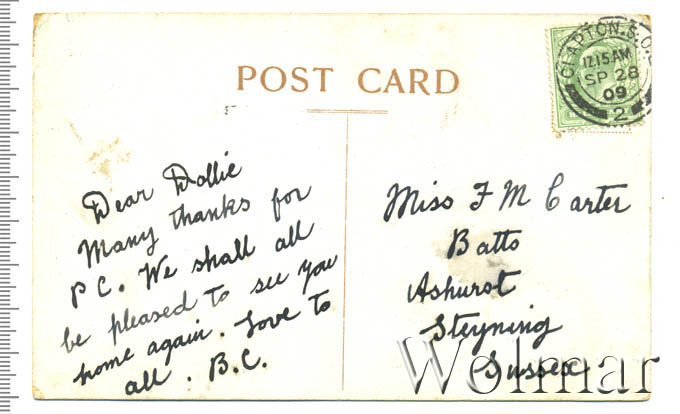 POST CARD
CLAPTON. S.O.
12.15AM
SP 28
09
2
Dear Dollie
Many thanks for
P C. We shall all
be pleased to see you
home again. Love to
all. B.C.
Miss F M Carter
Batts
Ashurst
Steyning
Sussex.
Wolmar